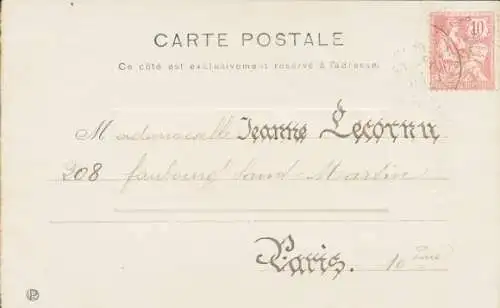 CARTE POSTALE
Ce côté est exclusivement réservé à l'adresse.
10
Mademoiselle Jeanne Lecornu
208 faubourg Saint-Martin
Paris. 10ème